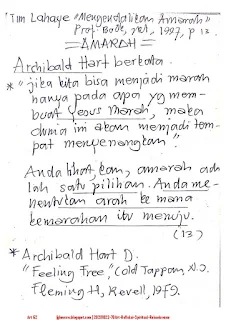 * Tim Lahaye "Mengendalikan Amarah"
Prof. Book, 1997, p 12.
= AMARAH =
Archibald Hart berkata.
* "jika kita bisa menjadi marah
hanya pada apa yg mem-
buat Yesus Marah, maka
dunia ini akan menjadi tem-
pat menyenangkan"
Anda lihat, kan, amarah ada
lah satu pilihan. Anda me-
nentukan arah ke mana
kemarahan itu menuju.
(13)
* Archibald Hart D.
"Feeling Free," Cold Tappan, N.J.
Fleming H. Revell, 1979.